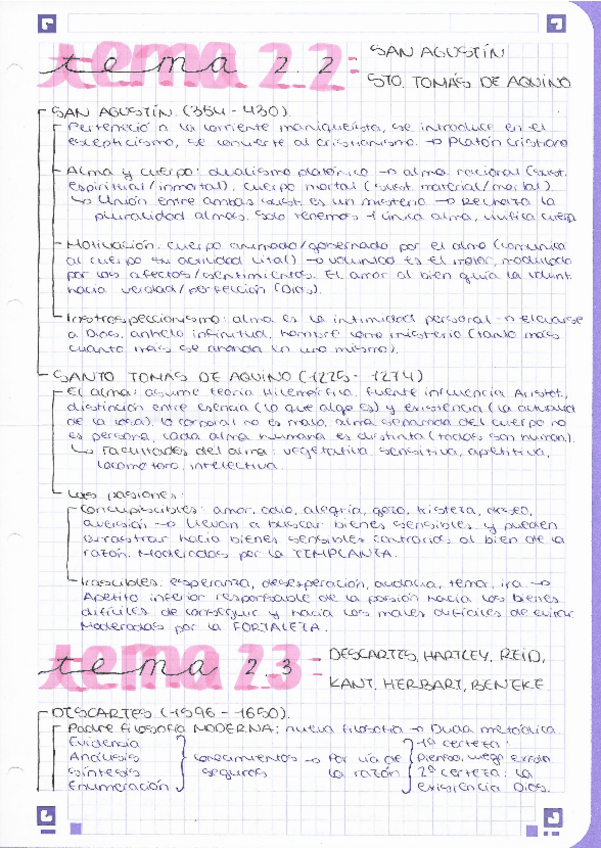 tema 2.2
SAN AGUSTÍN
STO. TOMÁS DE AQUINO
SAN AGUSTÍN (354-430)
Perteneció a la corriente maniqueísta, se introduce en el
escepticismo, se convierte al cristianismo. → Platón cristiano
Alma y cuerpo: dualismo platónico → alma racional (sust.
espiritual/inmortal), cuerpo mortal (sust. material/mortal).
↳ Unión entre ambas sust. es un misterio → Rechaza la
pluralidad almas. Solo tenemos 1 única alma, unifica cuerpo
Motivación: cuerpo animado/gobernado por el alma (comunica
al cuerpo su actividad vital) → voluntad es el motor, modulado
por los afectos/sentimientos. El amor al bien guía la volunt.
hacia verdad/perfección (Dios).
Instrospeccionismo: alma es la intimidad personal → elevarse
a Dios, anhelo infinitud, hombre como misterio (tanto más
cuanto más se ahonda en uno mismo).
SANTO TOMAS DE AQUINO (1225- 1274)
El alma: asume teoría hilemórfica. Fuente influencia Aristót.,
distinción entre esencia (lo que algo es) y existencia (la
de la idea). lo corporal no es malo, alma separada del cuerpo no
es persona, cada alma humana es distinta (todas son human.).
↳ Facultades del alma: vegetativa, sensitiva, apetitiva,
locomotora, intelectiva.
Las pasiones:
Concupiscibles: amor, odio, alegría, gozo, tristeza, deseo,
aversión → llevan a buscar bienes sensibles y pueden
arrastrar hacia bienes sensibles contrarios al bien de la
razón. Moderadas por la TEMPLANZA.
Irascibles: esperanza, desesperación, audacia, temor, ira →
Apetito inferior responsable de la pasión hacia los bienes
difíciles de conseguir y hacia los males difíciles de evitar.
Moderadas por la FORTALEZA.
tema 2.3
DESCARTES, HARTLEY, REID,
KANT, HERBART, BENEKE
DESCARTES (1596-1650).
Padre filosofía MODERNA: nueva filosofía → Duda metódica.
Evidencia
Análisis
síntesis
Enumeración
conocimientos → Por vía de
seguros la razón
1ª certeza:
Pienso, luego existo
2ª certeza: la
existencia Dios.